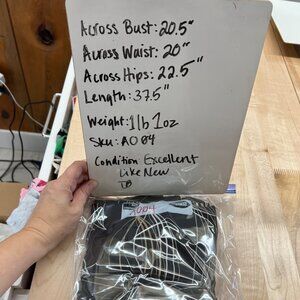 Across Bust: 20.5"
Across Waist: 20"
Across Hips: 22.5"
Length: 37.5"
Weight: 1lb 1oz
Sku: A084
Condition Excellent
Like New
A084